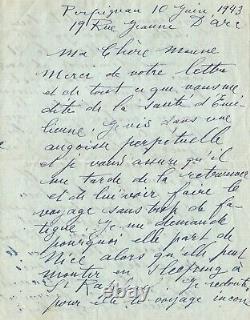 Perpignan 10 Juin 1943
19 Rue Jeanne D'Arc
Ma Chère
Merci de votre lettre
et de tout ce que vous me
dite de la santé d'Emi
lienne. Je vis dans une
angoisse perpétuelle
et je vous assure qu'il
me tarde de la retrouver
et de lui voir faire le
voyage sans trop de fa
tigue. Je me demande
pourquoi elle part de
Nice alors qu'elle peut
monter en Sleeping à
St Ra je redoute
pour elle le voyage incon